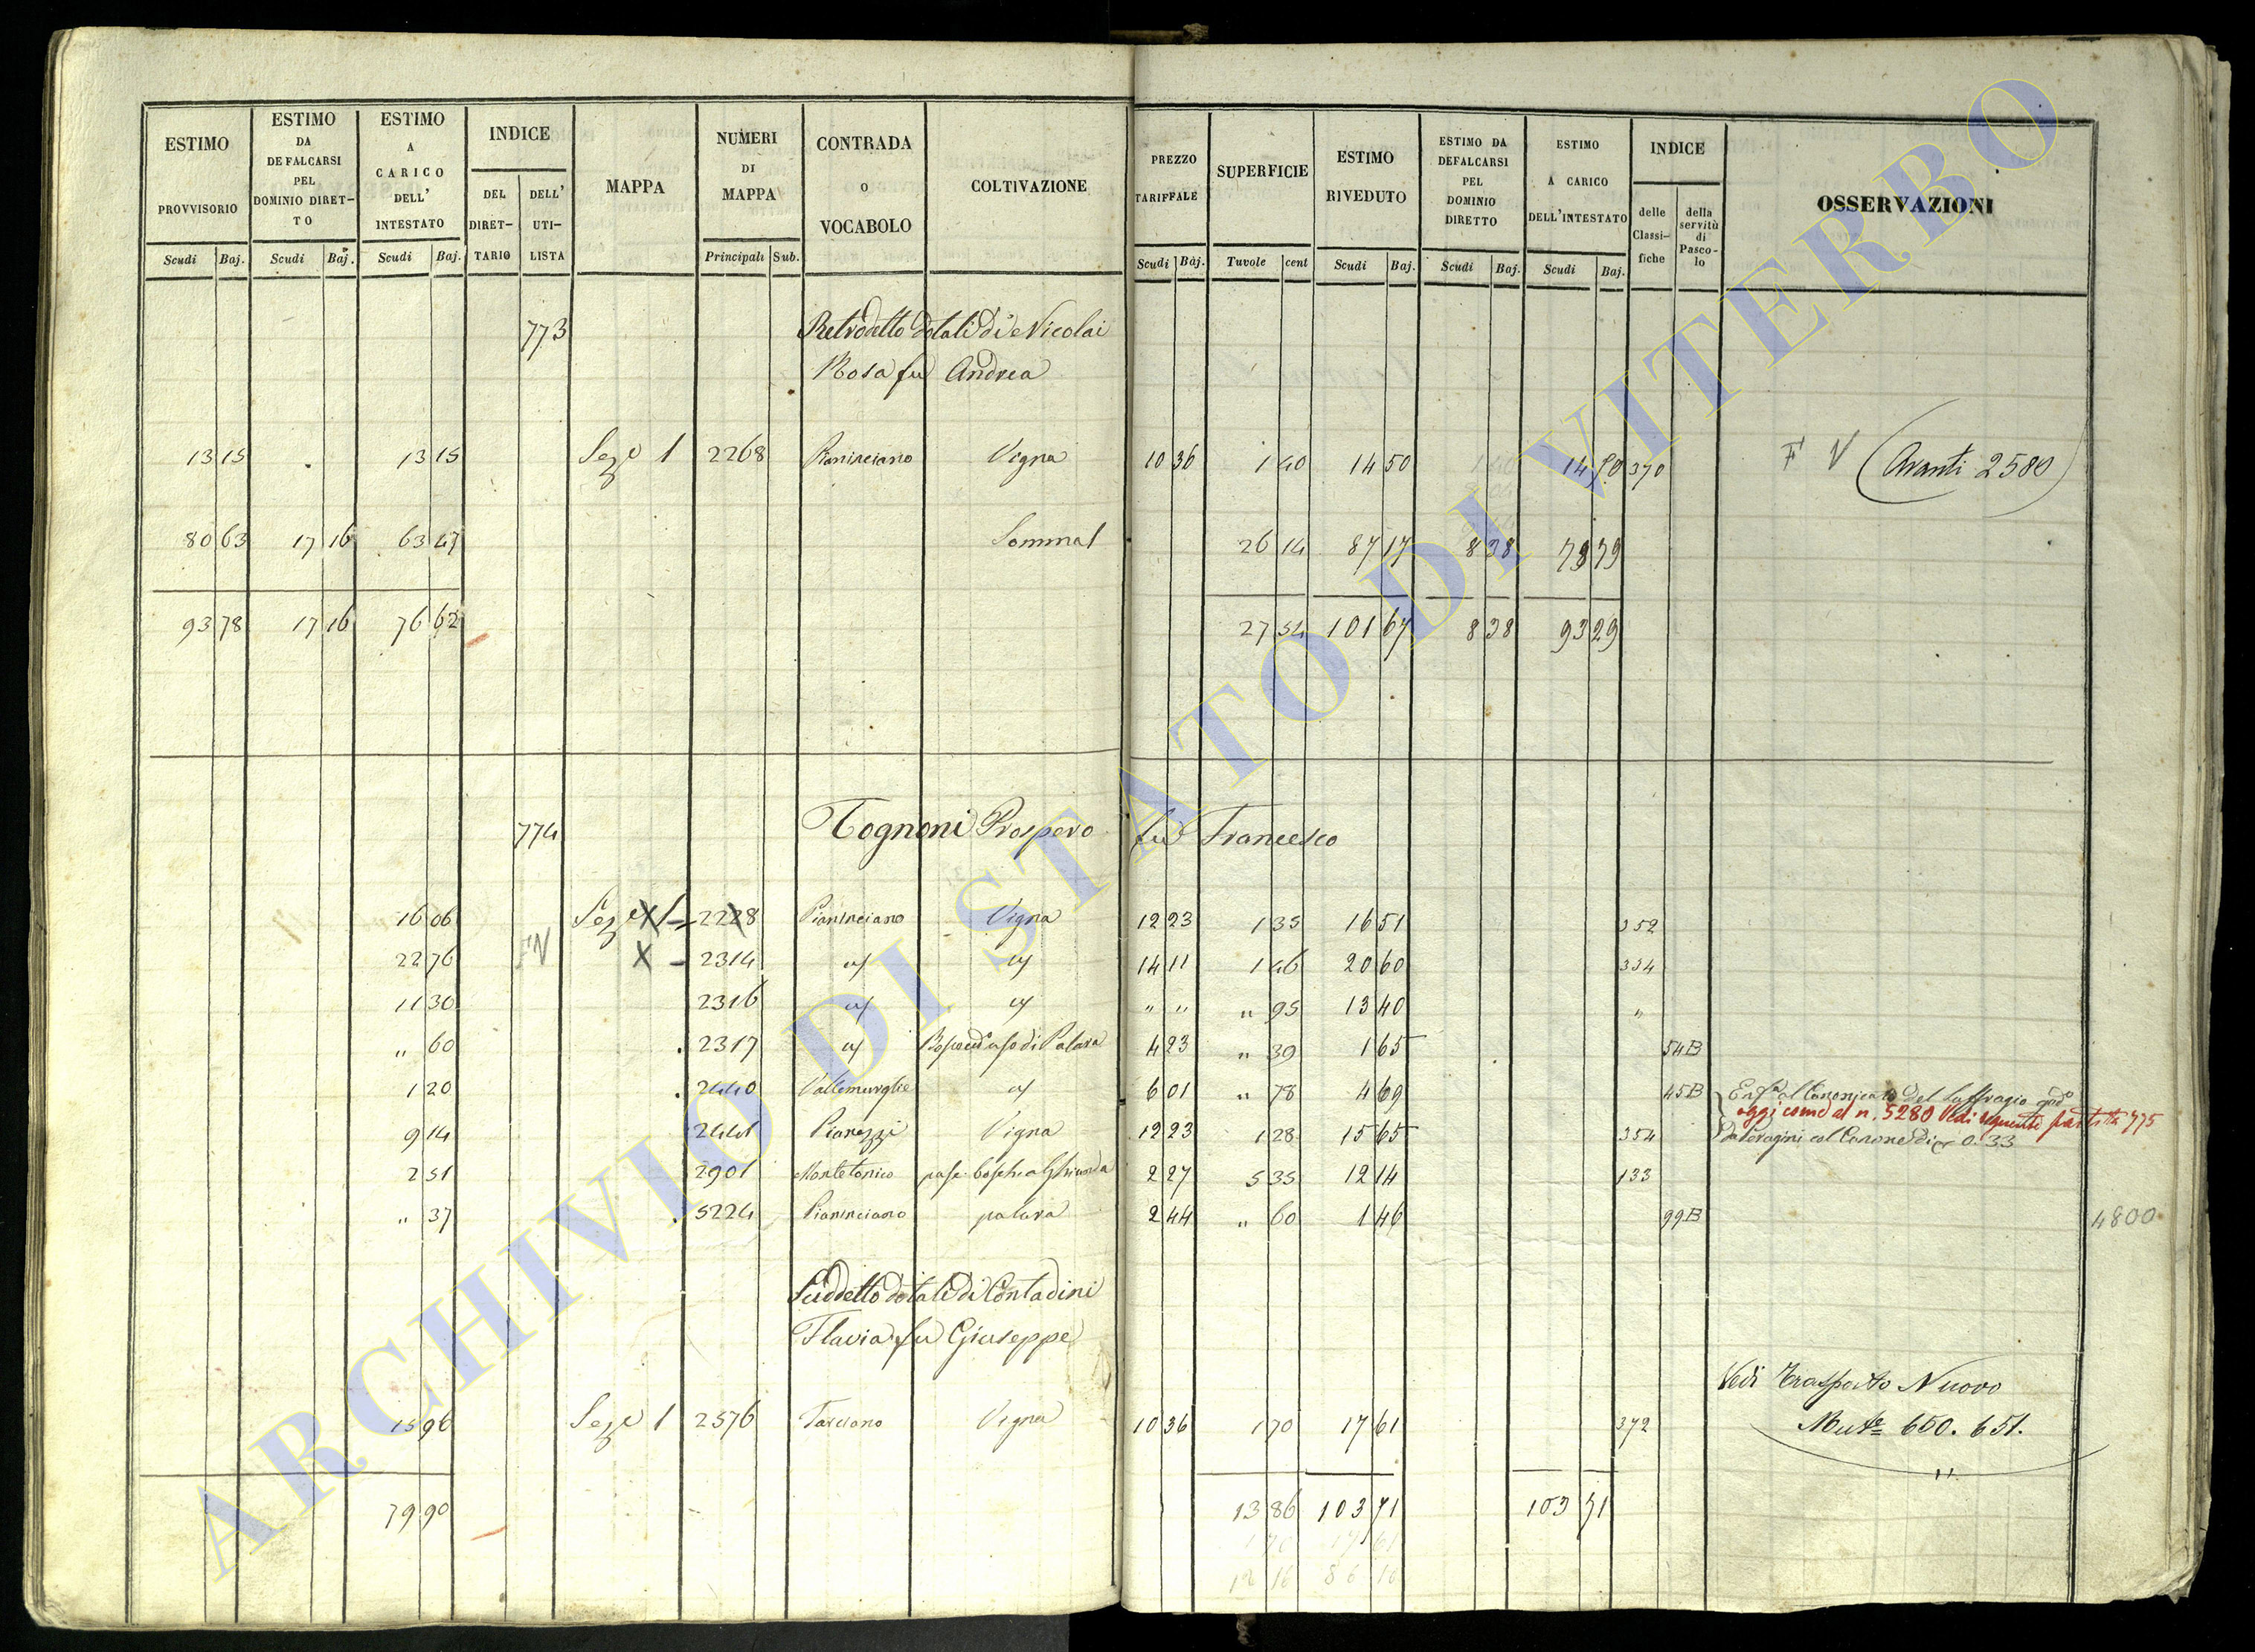 ESTIMO PROVVISORIO
ESTIMO DA DEFALCARSI PEL DOMINIO DIRET–TO
ESTIMO A CARICO DELL' INTESTATO
INDICE
DEL DIRET–TARIO
DELL' UTI–LISTA
MAPPA
NUMERI DI MAPPA
CONTRADA O VOCABOLO
COLTIVAZIONE
PREZZO TARIFFALE
SUPERFICIE
ESTIMO RIVEDUTO
ESTIMO DA DEFALCARSI PEL DOMINIO DIRETTO
ESTIMO A CARICO DELL'INTESTATO
INDICE
delle Classi–fiche
della servitù di Pasco-lo
OSSERVAZIONI
Scudi Baj. Scudi Baj. Scudi Baj. Principali Sub. Scudi Baj. Tavole cent Scudi Baj. Scudi Baj. Scudi Baj.
773 Retrodetto dotali di Nicolai
Rosa fu Andrea
13 15 13 15 Sez.e 1 2268 Pianinciano Vigna 10 36 1 40 14 50 14 50 370 F V (Avanti 2580)
80 63 17 16 63 47 Somma 26 14 87 17 8 38 78 79
93 78 17 16 76 62 27 54 101 67 8 38 93 29
774 Tognoni Prospero fu Francesco
16 06 Sez.e X 1 – 2228 Pianinciano Vigna 12 23 1 35 16 51 352
22 76 FV X – 2314 14 11 1 46 20 60 334
11 30 2316 " " " 95 13 40 "
" 60 2317 4 23 " 39 1 65 54B
1 20 2440 Vallemuroglie 6 01 " 78 4 69 45B
oggi come al n. 5280 Vedi seguente partita 775
9 14 2441 Pianezzi Vigna 12 23 1 28 15 65 354
2 51 2901 Montetonico 2 27 5 35 12 14 133
" 37 5224 Pianinciano palara 2 44 " 60 1 46 99B 4800
Suddetto dotali di Contadini
Flavia fu Giuseppe
Vedi Trasporto Nuovo
15 96 Sez.e 1 2576 Tarciano Vigna 10 36 1 70 17 61 372 Mut.e 650. 651.
79 90 13 86 103 71 103 71
1 70 17 61
12 16 86 10
ARCHIVIO DI STATO DI VITERBO